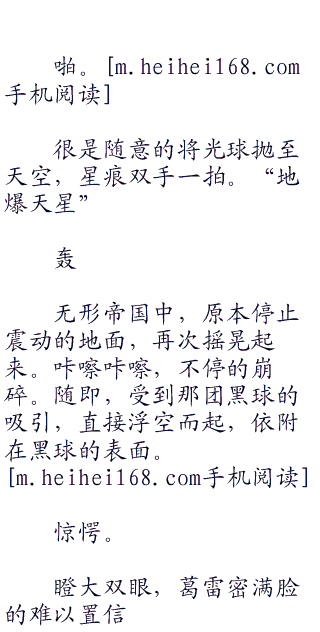 啪。[m.heihei168.com
手机阅读]
很是随意的将光球抛至
天空，星痕双手一拍。“地
爆天星”
轰
无形帝国中，原本停止
震动的地面，再次摇晃起
来。咔嚓咔嚓，不停的崩
碎。随即，受到那团黑球的
吸引，直接浮空而起，依附
在黑球的表面。
[m.heihei168.com手机阅读]
惊愕。
瞪大双眼，葛雷密满脸
的难以置信